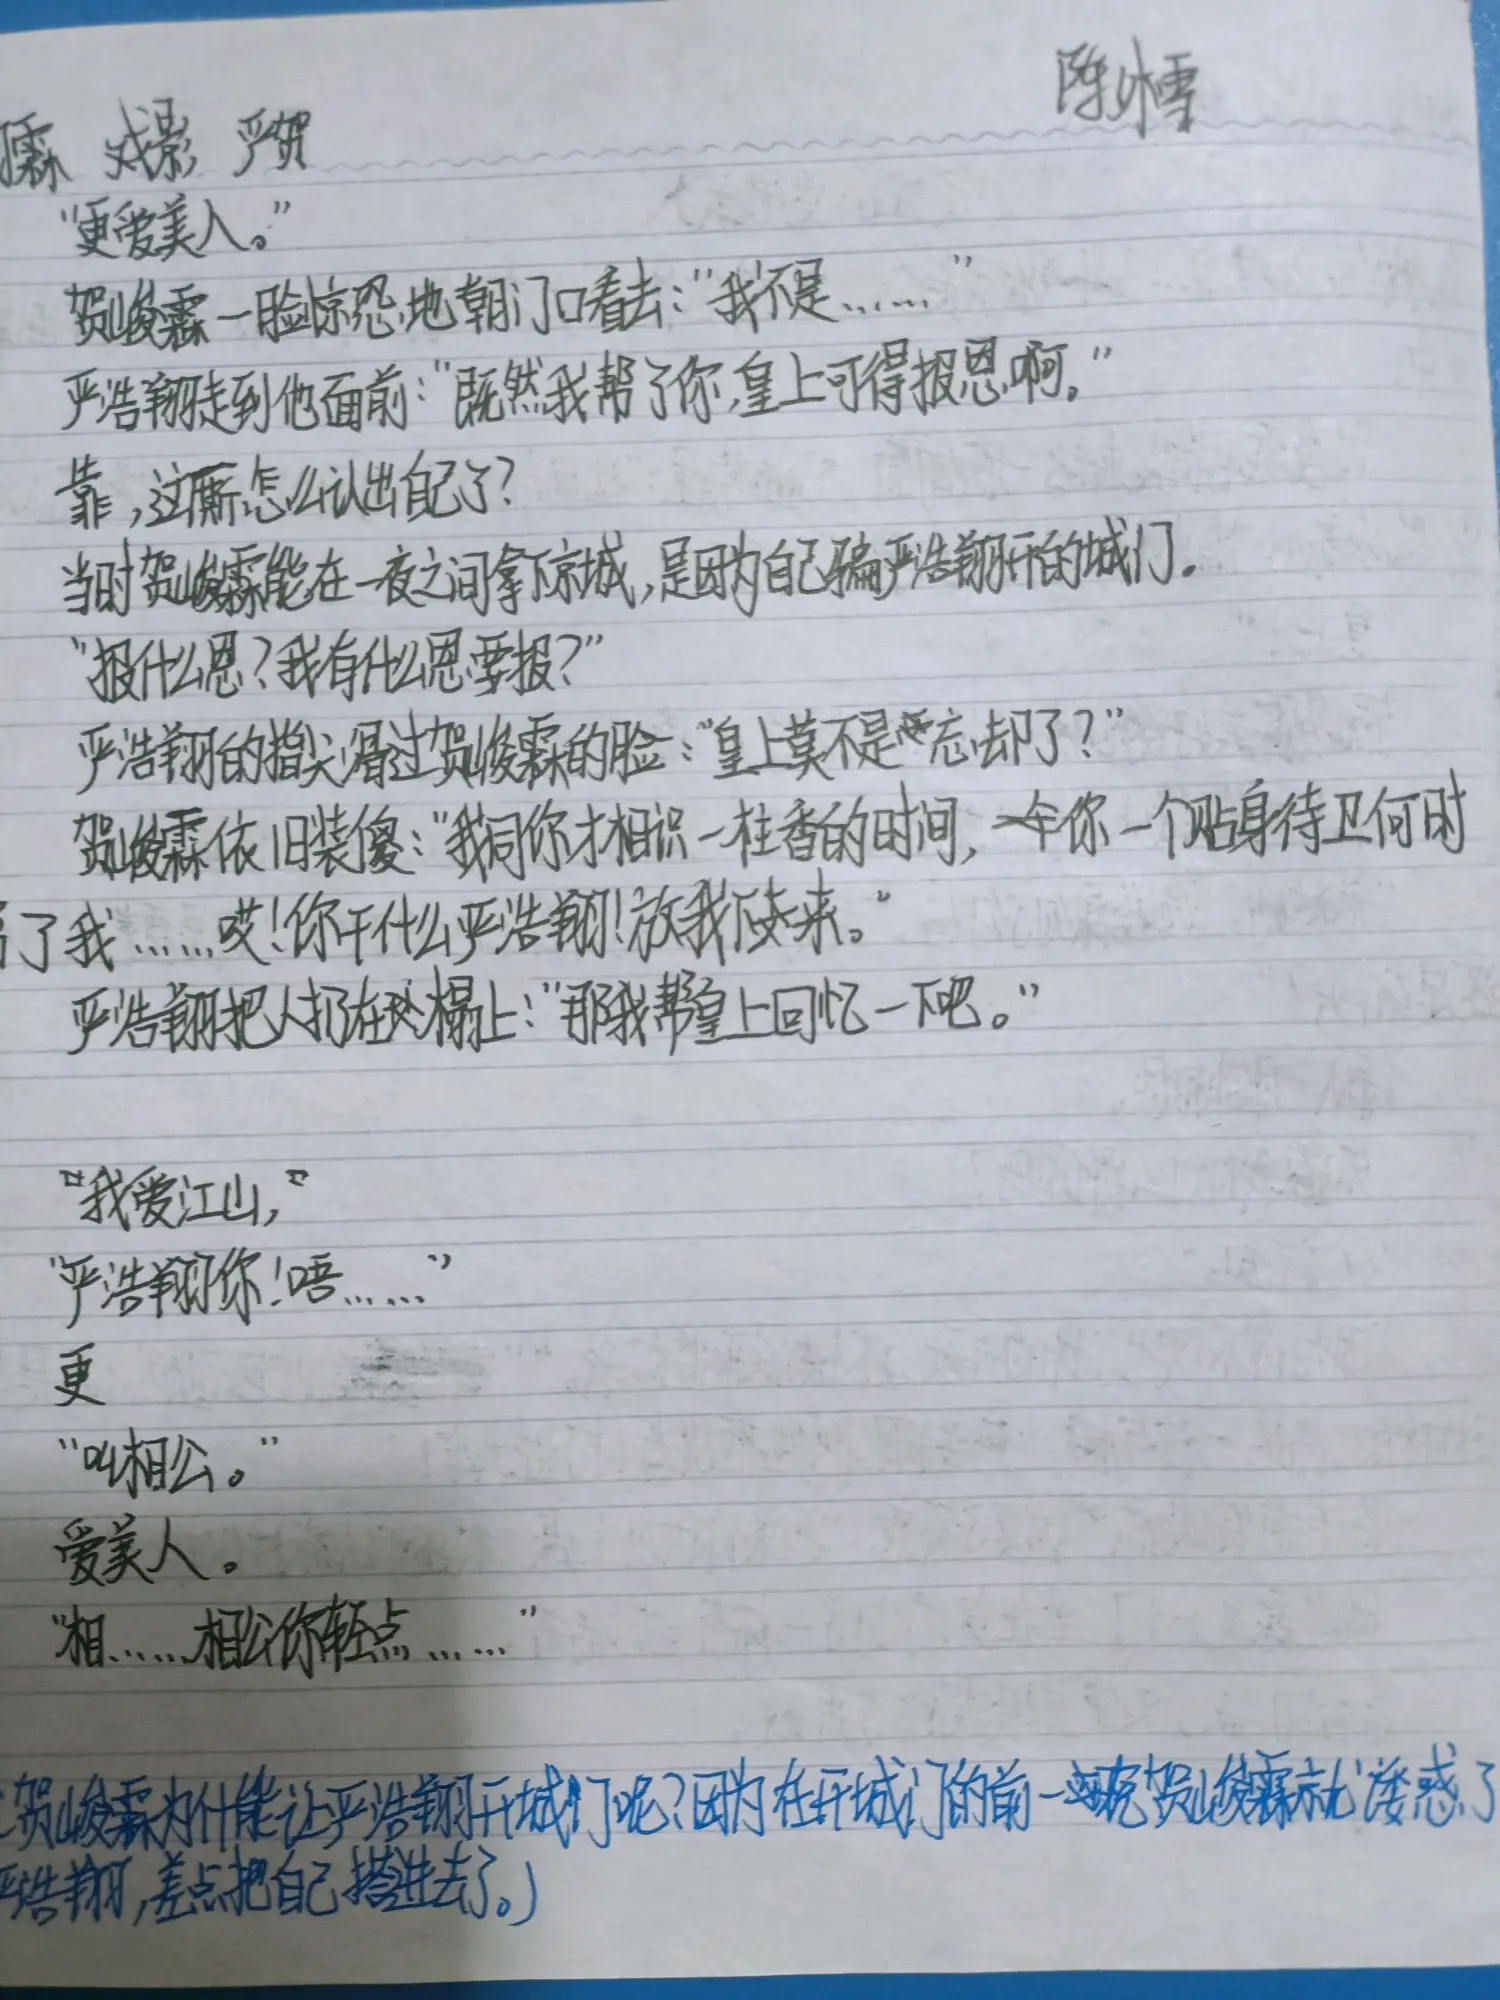 陈冰雪
霖 戏影 严贺
“更爱美人。”
贺峻霖一脸惊恐地朝门口看去：“我不是……”
严浩翔走到他面前：“既然我帮了你，皇上可得报恩啊。”
靠，这厮怎么认出自己了？
当时贺峻霖能在一夜之间拿下京城，是因为自己骗严浩翔开的城门。
“报什么恩？我有什么恩要报？”
严浩翔的指尖滑过贺峻霖的脸：“皇上莫不是忘却了？”
贺峻霖依旧装傻：“我同你才相识一柱香的时间，你一个贴身待卫何时
了我……哎！你干什么严浩翔！放我下来。”
严浩翔把人扔在榻上：“那我帮皇上回忆一下吧。”
“我爱江山，”
“严浩翔你！唔……”
更
“叫相公。”
爱美人。
“相……相公你轻点……”
贺峻霖为什能让严浩翔开城门呢？因为在开城门的前一夜贺峻霖就惑了
严浩翔，差点把自己搭进去了。）